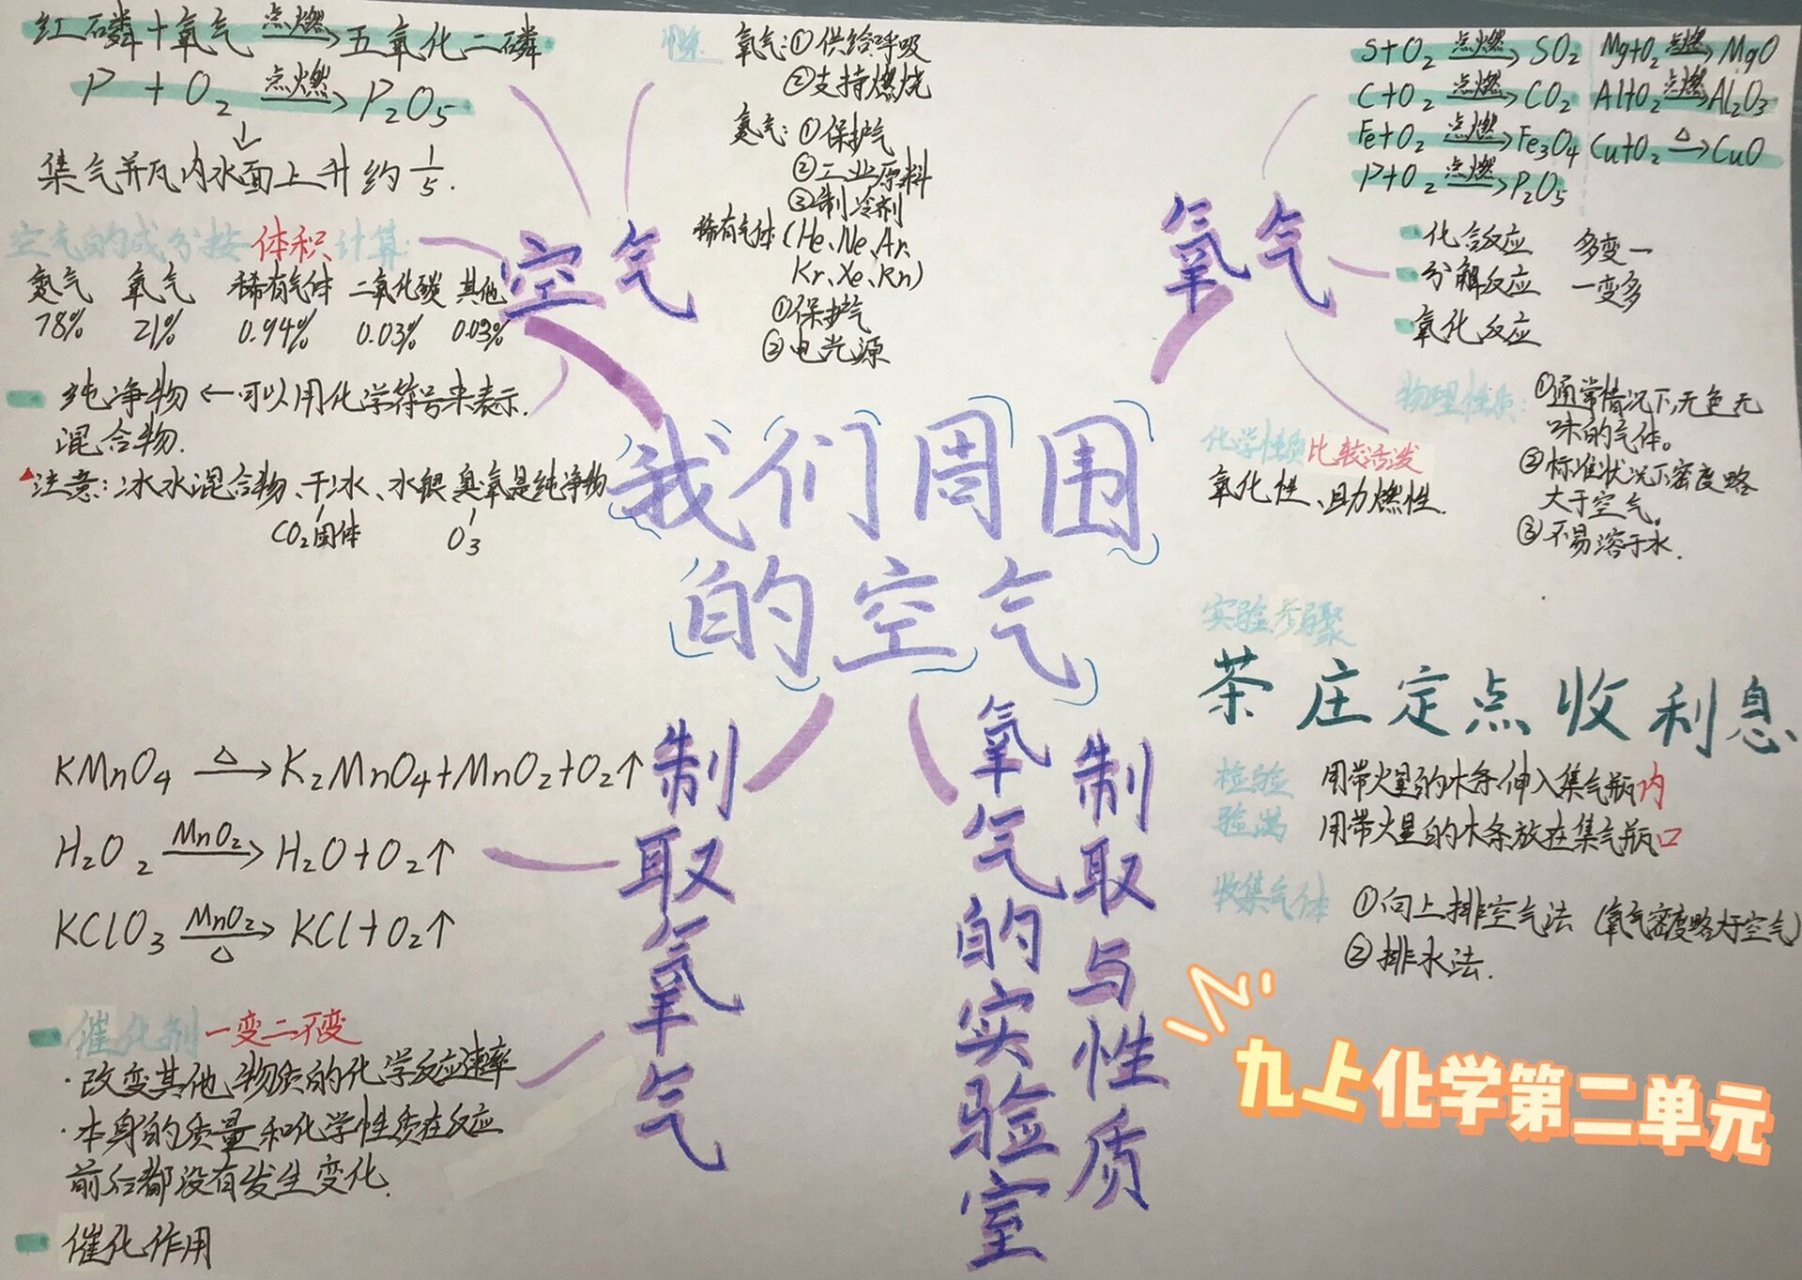 红磷+氧气 点燃→ 五氧化二磷
P + O₂ 点燃→ P₂O₅
↓
集气并瓦内水面上升约 1/5.
空气的成分按体积计算:
氮气 氧气 稀有气体 二氧化碳 其他
78% 21% 0.94% 0.03% 0.03%
纯净物 ←可以用化学符号来表示.
混合物.
注意:冰水混合物、干冰、水银 臭氧是纯净物
CO₂固体 O₃
空气
氧气:①供给呼吸
②支持燃烧
氮气:①保护气
②工业原料
③制冷剂
稀有气体(He、Ne、Ar、
Kr、Xe、Rn)
①保护气
②电光源
氧气
S+O₂ 点燃→ SO₂ Mg+O₂ 点燃→ MgO
C+O₂ 点燃→ CO₂ Al+O₂ 点燃→ Al₂O₃
Fe+O₂ 点燃→ Fe₃O₄ Cu+O₂ △→ CuO
P+O₂ 点燃→ P₂O₅
化合反应 多变一
分解反应 一变多
氧化反应
物理性质:①通常情况下,无色无
味的气体。
②标准状况下,密度略
大于空气。
③不易溶于水.
化学性质 比较活泼
氧化性、助燃性.
我们周围
的空气
制取氧气
KMnO₄ △→ K₂MnO₄+MnO₂+O₂↑
H₂O₂ MnO₂→ H₂O+O₂↑
KClO₃ MnO₂△→ KCl+O₂↑
催化剂 一变二不变
·改变其他物质的化学反应速率
·本身的质量和化学性质在反应
前后都没有发生变化.
催化作用
氧气的实验室
制取与性质
实验步骤
茶庄定点收利息
检验 用带火星的木条伸入集气瓶内
验满 用带火星的木条放在集气瓶口
收集气体 ①向上排空气法 (氧气密度略大于空气)
②排水法.
九上化学第二单元